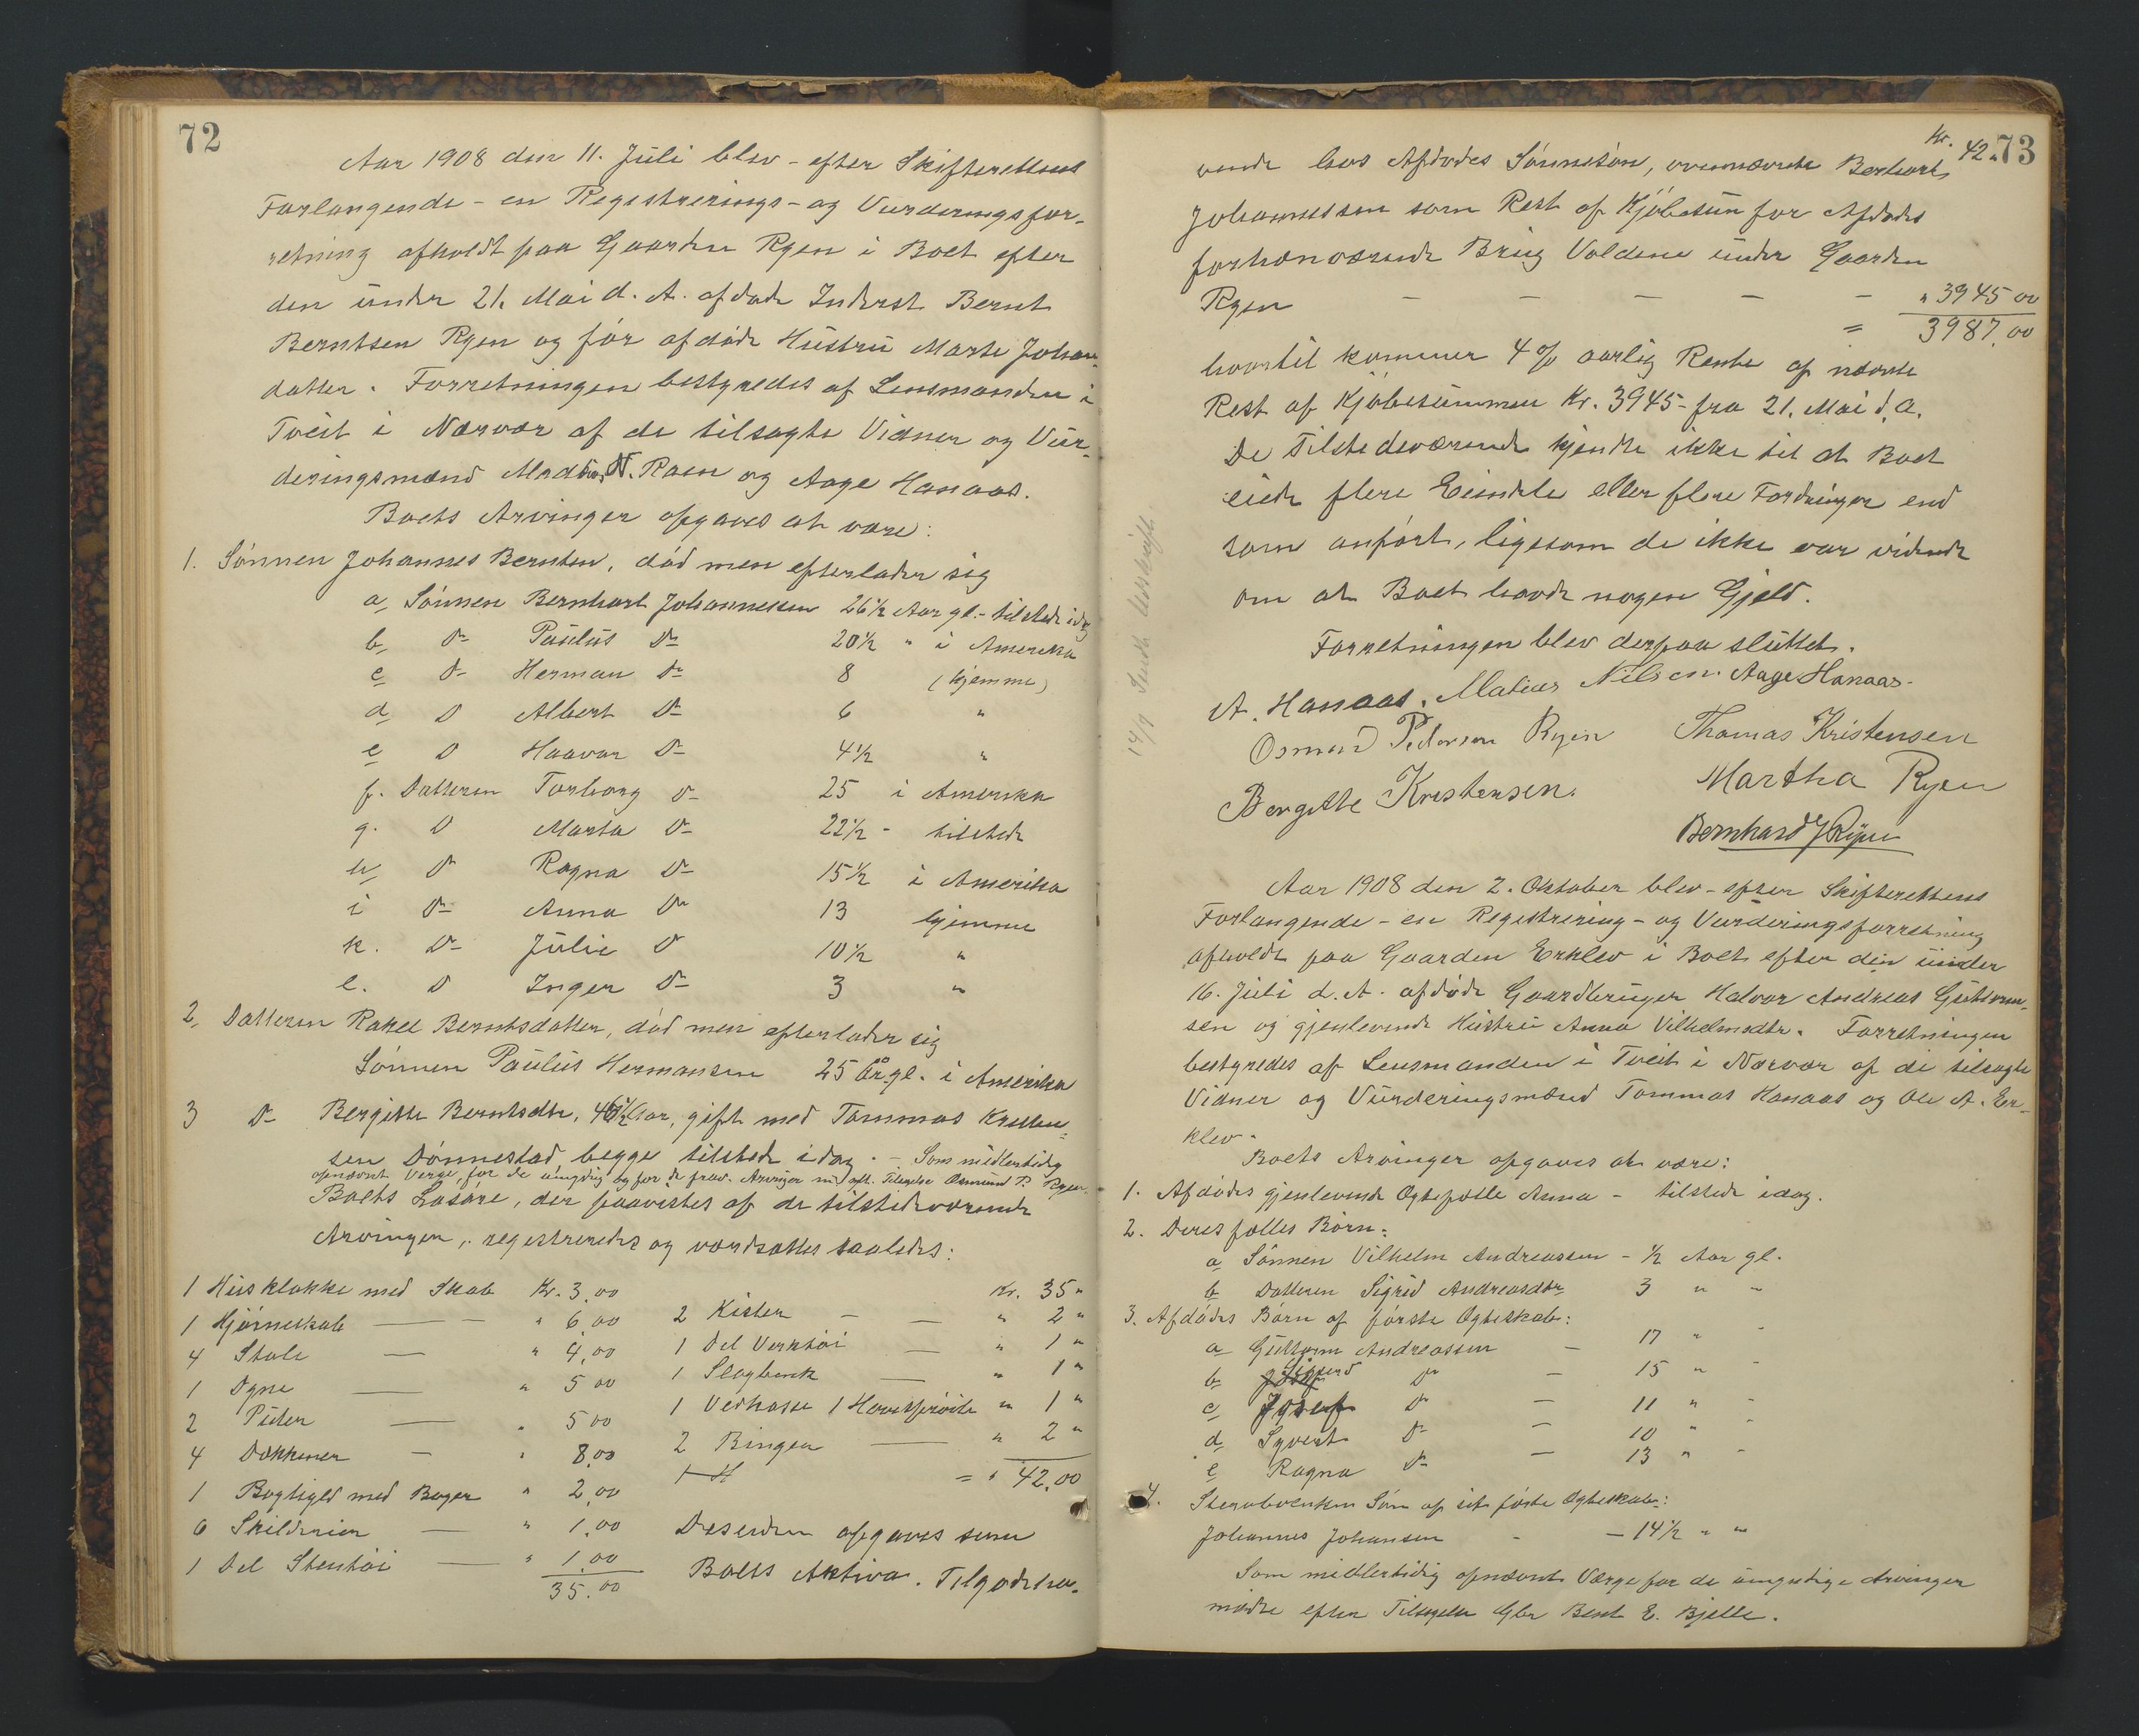 72
Aar 1908 den 11. Juli blev - efter Skifterettens
Forlangende - en Registrerings- og Vurderingsfor-
retning afholdt paa Gaarden Ryen i Boet efter
den under 21. Mai d. A. afdøde Inderst Bernt
Berntsen Ryen og før afdøde Hustru Marte Johan-
datter. Forretningen bestyredes af Lensmanden i
Tveit i Nærvær af de tilsagte Vidner og Vur-
deringsmænd N. Raen og Aage Hanaas.
Boets Arvinger opgaves at være:
1. Sønnen Johannes Berntsen, død men efterlader sig
a, Sønnen Bernhart Johannessen 26½ Aar gl. - tilstede idag
b, Do Paulus Do 20½ " i Amerika
c Do Herman Do 8 (hjemme)
d, D Albert Do 6 "
e D Haavar Do 4½ "
f. Datteren Torborg Do 25 i Amerika
g. D Marta Do 22½ - tilstede
h, Do Ragna Do 15½ i Amerika
i Do Anna Do 13 hjemme
k. Do Julie D 10½ "
l. D Inger Do 3 "
2, Datteren Rakel Berntsdatter, død men efterlader sig
Sønnen Paulus Hermansen 25 År gl. i Amerika
3 Do Bergitte Berntsdtr, 46½ Aar, gift med Tommas Kristen-
sen Dønnestad begge tilstede idag. - Som midlertidig
opnævnt Verge for de umyndig og for de frav. Arvinger mødte eft. Tilsigelse Osmund P. Ryen.
Boets Løsøre, der paavistes af de tilstedeværende
Arvinger, registreredes og værdsattes saaledes:
1 Husklokke med Skab Kr. 3,00
1 Hjørneskab — " 6,00
4 Stole — " 4,00
1 Dyne — " 5 00
2 Puter — " 5 00
4 Dækkener — " 8,00
1 Boghyld med Bøger " 2,00
6 Skilderier — " 1,00
1 Del Stentøi — " 1.00
35.00
Kr. 35 "
2 Kister — " 2 "
1 Del Verktøi — " 1 "
1 Slagbenk — " 1 "
1 Vedkasse 1 " 1 "
2 Binger — " 2 "
= " 42,00
Desuden opgaves som
Boets Aktiva. Tilgodeha-
Kr. 42 "
73
vende hos Afdødes Sønnesøn, ovennævnte Bernhart
Johannessen som Rest af Kjøbesum for Afdødes
forhenværende Brug Voldene under Gaarden
Ryen — — — — — " 3945 00
= 3987,00
hvortil kommer 4 % aarlig Rente af nævnte
Rest af Kjøbesummen Kr. 3945 - fra 21. Mai d. A.
De Tilstedeværende kjendte ikke til at Boet
eiede flere Eiendele eller flere Fordringer end
som anført, ligesom de ikke var vidende
om at Boet havde nogen Gjeld.
Forretningen blev derpaa sluttet.
A. Hanaas. Matias Nilsen. Aage Hanaas.
Osmund Pedersen Ryen Thomas Kristensen
Bergitte Kristensen. Martha Ryen
Bernhard J Ryen
14/9
Aar 1908 den 2. Oktober blev - efter Skifterettens
Forlangende - en Registrering- og Vurderingsforretning
afholdt paa Gaarden Erklev i Boet efter den under
16. Juli d. A. afdøde Gaardbruger Halvor Andreas Guttorm-
sen og gjenlevende Hustru Anna Vilhelmsdtr. Forretningen
bestyredes af Lensmanden i Tveit i Nærvær af de tilsagte
Vidner og Vurderingsmænd Tommas Hanaas og Ole A. Er-
klev.
Boets Arvinger opgaves at være:
1. Afdødes gjenlevende Egtefælle Anna - tilstede idag.
2. Deres fælles Børn:
a Sønnen Vilhelm Andreassen - ½ Aar gl.
b Datteren Sigrid Andreasdtr 3 " "
3. Afdødes Børn af første Egteskab:
a Guttorm Andreassen — 17 " "
b Sigurd Do — 15 " "
c, Josef Do — 11 " "
d Syvert Do — 10 " "
e Ragna Do — 13 " "
4. Søn af sit første Egteskab:
Johannes Johansen - — 14½ " "
Som midlertidig opnævnt Værge for de umyndige Arvinger
mødte efter Tilsigelse Gbr Bent E. Bjelle.